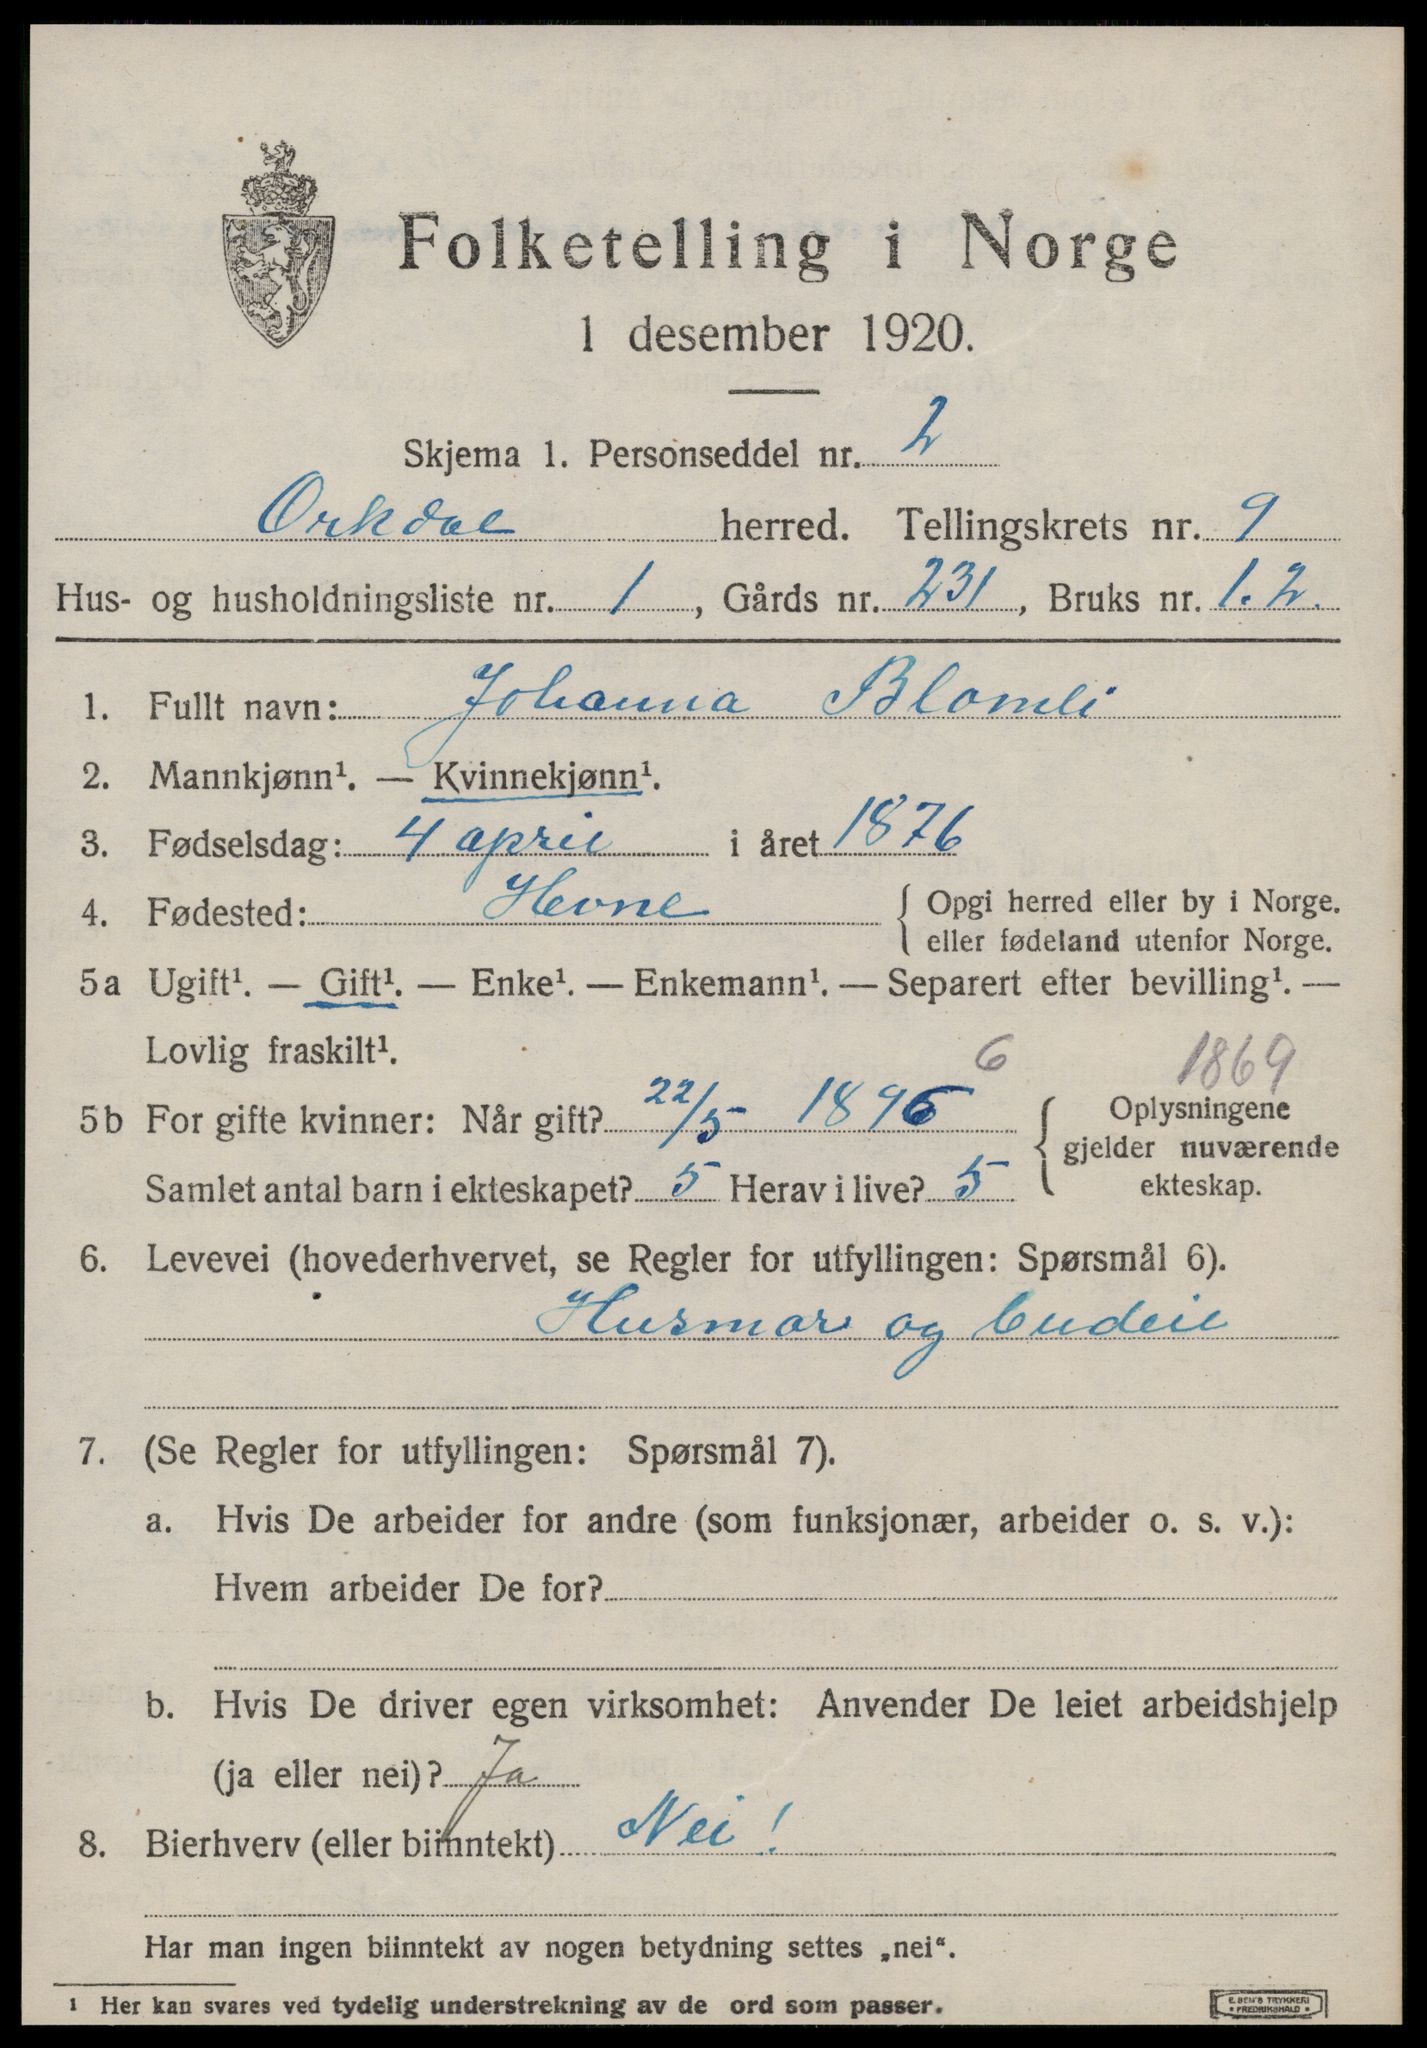 Folketelling i Norge
1 desember 1920.
Skjema 1. Personseddel nr. 2
Orkdal herred. Tellingskrets nr. 9
Hus- og husholdningsliste nr. 1, Gårds nr. 231, Bruks nr. 1.2.
1. Fullt navn: Johanna Blomli
2. Mannkjønn¹. — Kvinnekjønn¹.
3. Fødselsdag: 4 april i året 1876
4. Fødested: Hevne { Opgi herred eller by i Norge.
eller fødeland utenfor Norge.
5a Ugift¹. — Gift¹. — Enke¹. — Enkemann¹. — Separert efter bevilling¹. —
Lovlig fraskilt¹. 6 1869
5b For gifte kvinner: Når gift? 22/5 1896 { Oplysningene
gjelder nuværende
Samlet antal barn i ekteskapet? 5 Herav i live? 5 ekteskap.
6. Levevei (hovederhvervet, se Regler for utfyllingen: Spørsmål 6).
Husmor og budeie
7. (Se Regler for utfyllingen: Spørsmål 7).
a. Hvis De arbeider for andre (som funksjonær, arbeider o. s. v.):
Hvem arbeider De for?
b. Hvis De driver egen virksomhet: Anvender De leiet arbeidshjelp
(ja eller nei)? Ja
8. Bierhverv (eller biinntekt) Nei!
Har man ingen biinntekt av nogen betydning settes „nei“.
¹ Her kan svares ved tydelig understrekning av de ord som passer.
E. SEM'S TRYKKERI
• FREDRIKSHALD •